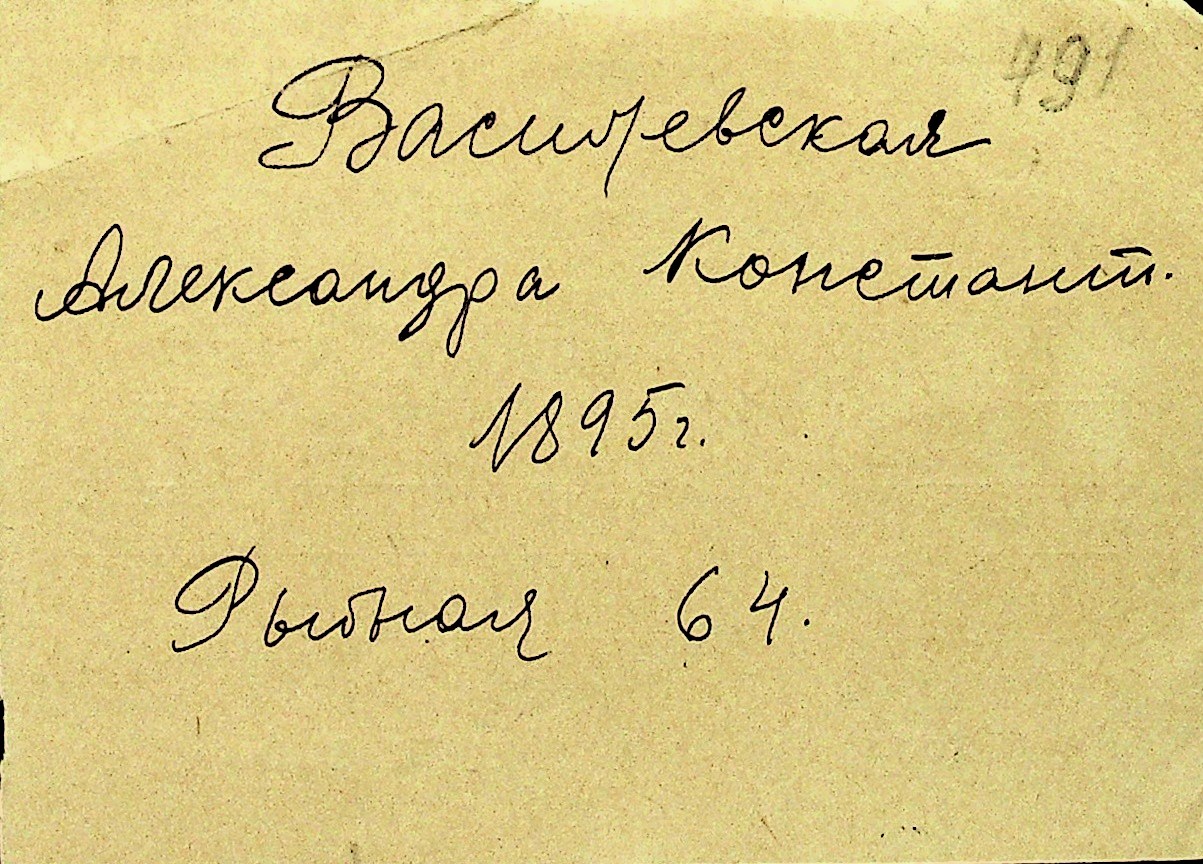 491
Василевская
Александра Констант.
1895г.
Рыбная 64.